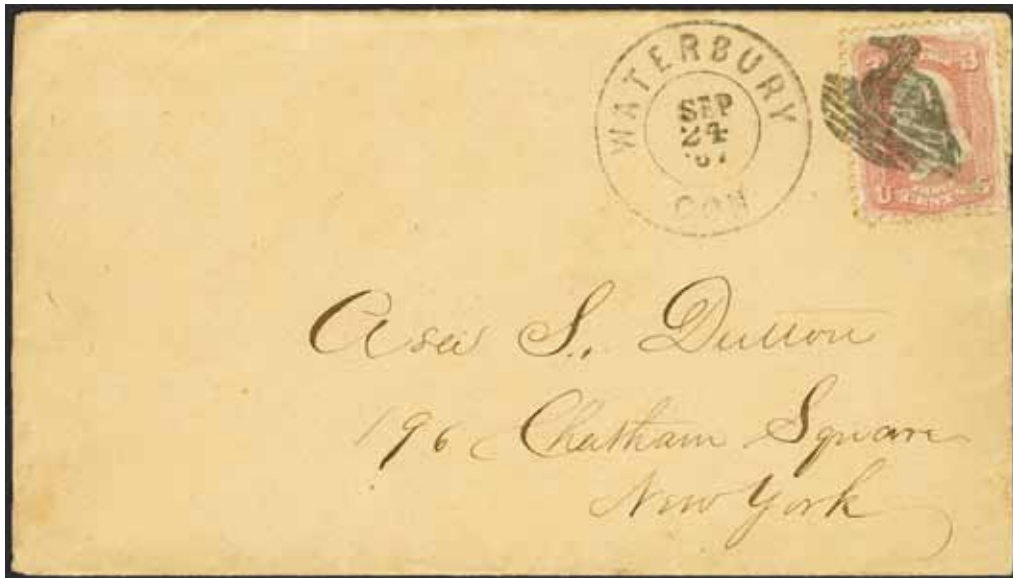 WATERBURY
SEP
24
'67
CON
3 3
U S
THREE
CENTS
Asa S. Dutton
196 Chatham Square
New York